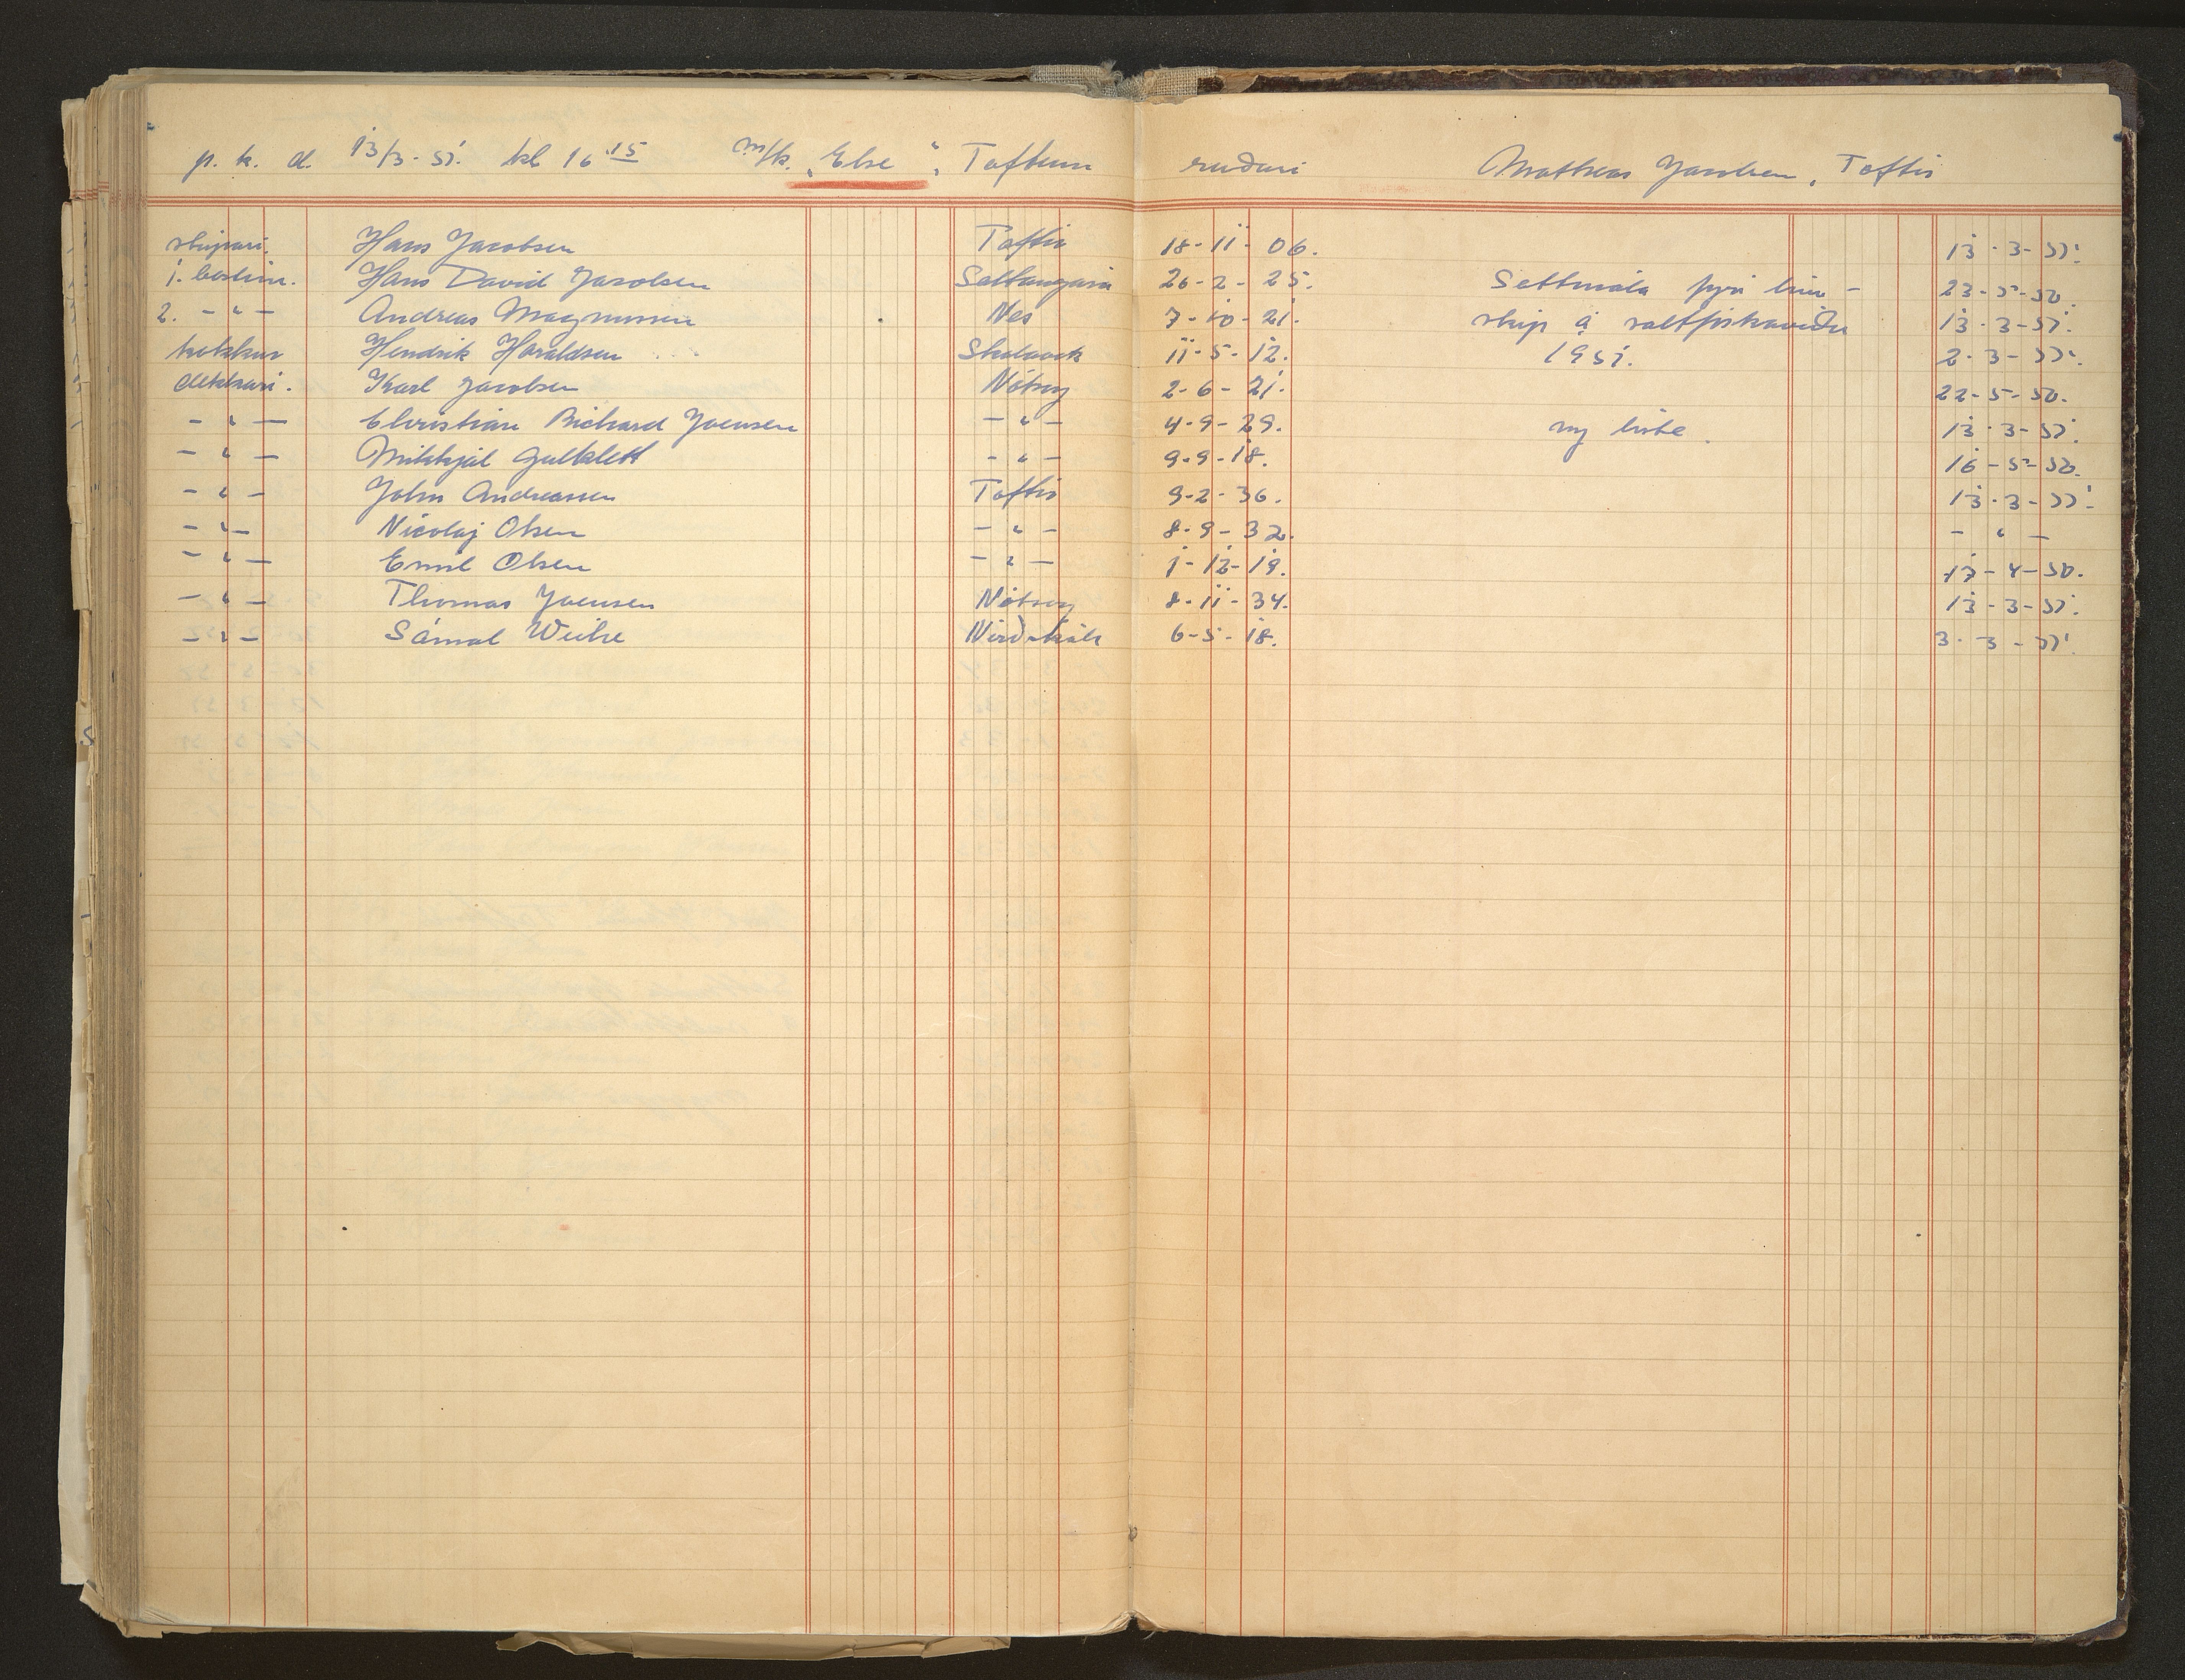 p. k. d. 13/3-51. kl 16 15 m/k. „Else“, Toftum ruðari Mathias Jacobsen, Toftir
skipari. Hans Jacobsen Toftir 18-11-06. 13-3-51.
1. bestim. Hans David Jacobsen Saltangará 26-2-25. Settmála fyri línu- 23-5-50.
2. -"- Andreas Magnussen Nes 7-10-21. skip á saltfiskaveiðu 13-3-51.
kokkur Hendrik Haraldsen Skálavík 11-5-12. 1951. 2-3-51.
dekkari. Karl Jacobsen Nólsoy 2-6-21. 22-5-50.
-"- Christian Richard Joensen -"- 4-9-29. ny liste. 13-3-51.
-"- Mikkjal Gullklett -"- 9-9-18. 16-5-50.
-"- John Andreassen Toftir 9-2-36. 13-3-51.
-"- Nicolaj Olsen -"- 8-9-32. -"-
-"- Emil Olsen -"- 1-12-19. 17-4-50.
-"- Thomas Joensen Nólsoy 8-11-34. 13-3-51.
-"- Sámal Weihe Norðskála 6-5-18. 3-3-51.